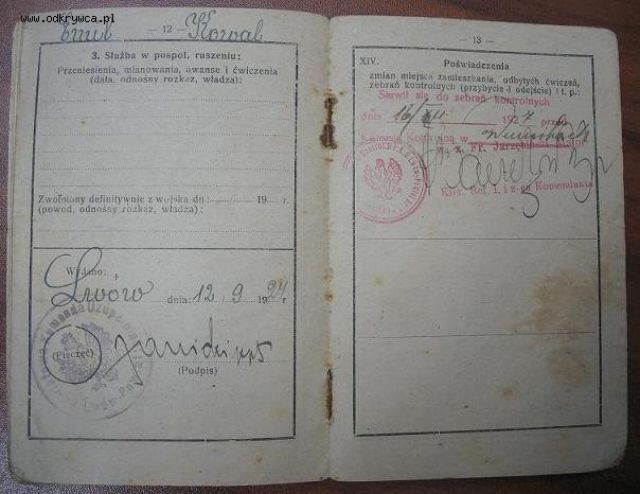 www.odkrywca.pl
Emil — 12 — Kowal
3. Służba w pospol. ruszeniu:
Przeniesienia, mianowania, awanse i ćwiczenia
(data, odnośny rozkaz, władza):
Zwolniony definitywnie z wojska dn: 19 r.
(powód, odnośny rozkaz, władza):
Wydano:
Lwów dnia: 12 9 1924 r
(Pieczęć)
(Podpis)
— 13 —
XIV. Poświadczenia
zmian miejsca zamieszkania, odbytych ćwiczeń,
zebrań kontrolnych (przybycie i odejście) i t. p.:
Stawił się do zebrań kontrolnych
dnia 16/XII 1927 przed
Komisją Kontrolną w
Wz. Fr. Jarzębiński Major
Kier. Ref. I i z-ca Komendanta